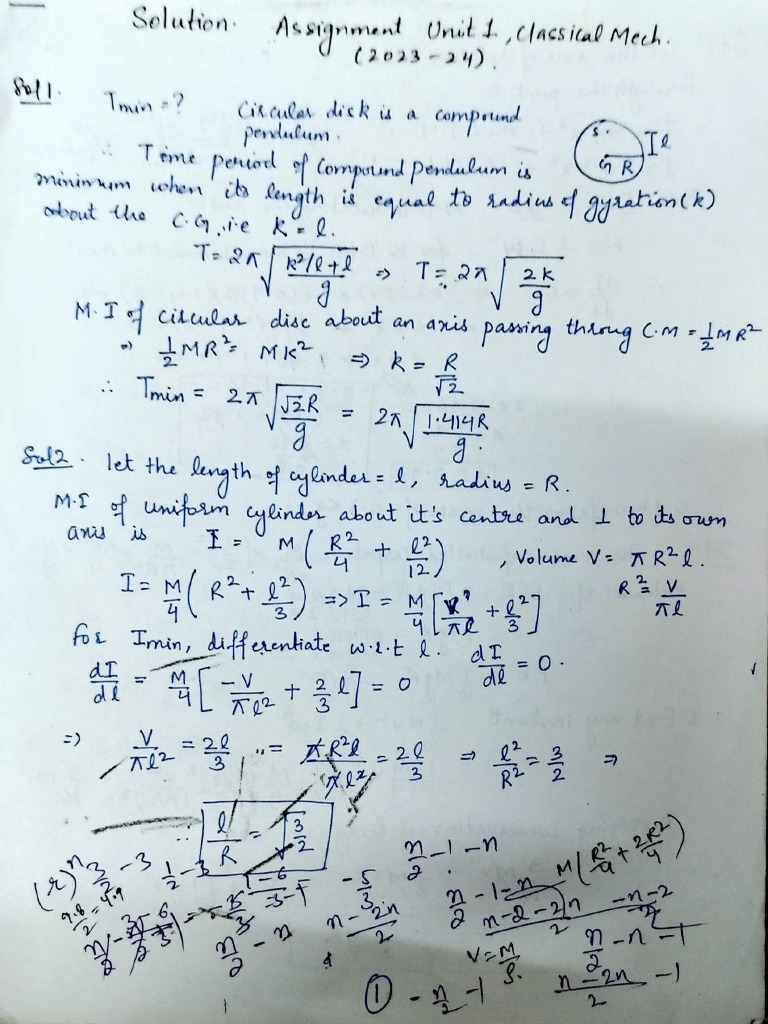 Solution. Assignment Unit 1, Classical Mech.
(2023-24).
Sol1. Tmin = ? Circular disk is a compound
pendulum.
S. G R I l
∴ Time period of compound pendulum is
minimum when its length is equal to radius of gyration (k)
about the C.G, i.e K = l.
T = 2π √((k²/l + l)/g) ⇒ T = 2π √(2k/g)
M.I of circular disc about an axis passing throug C.M = ½ MR²
⇒ ½ MR² = MK² ⇒ k = R/√2
∴ Tmin = 2π √(√2R/g) = 2π √(1.414R/g).
Sol2. let the length of cylinder = l, radius = R.
M.I of uniform cylinder about it's centre and ⊥ to its own
axis is I = M (R²/4 + l²/12), Volume V = πR²l.
I = M/4 (R² + l²/3) => I = M/4 [V/πl + l²/3] R² = V/πl
for Imin, differentiate w.r.t l. dI/dl = 0.
dI/dl = M/4 [-V/πl² + 2/3 l] = 0
=> V/πl² = 2l/3 = πR²l/πl² = 2l/3 ⇒ l²/R² = 3/2 ⇒
∴ l/R = √(3/2)
n/2 - 1 - n M(R²/4 + 2R²/4)
(r)ⁿ 3/2 - 3 1/2 - 3
9.8/2 = 4.9 -5/3 n/2 - 1 - n
n/2 - n n - 2n/2 n - 2 - 2n/2 -n-2/2
V = M/ρ. n/2 - n - 1
① -n/2 - 1 n - 2n/2 - 1